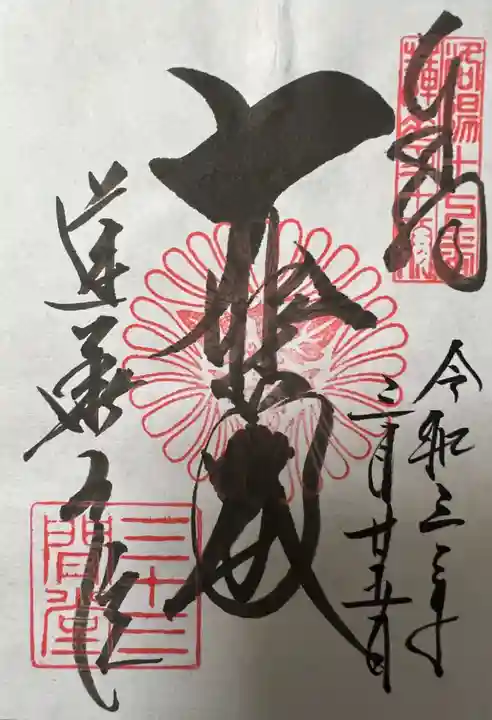 奉拝
洛陽十七番
蓮華王院
令和三年
三月廿五日
大悲殿
蓮華王院
三十三
間堂